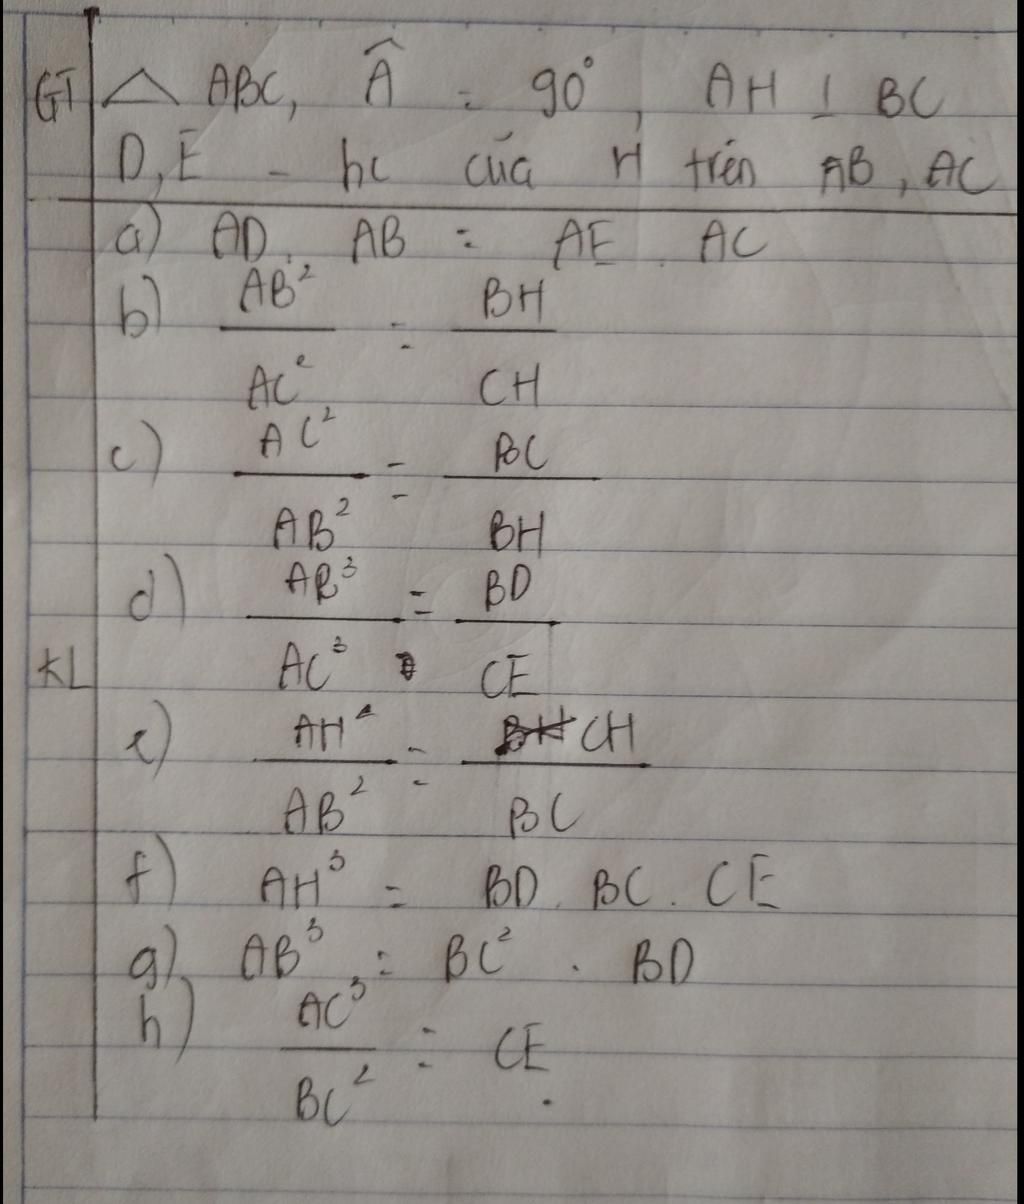 GT △ ABC, Â = 90°, AH ⊥ BC
D, E - hc của H trên AB, AC
a) AD . AB = AE . AC
b) AB² / AC² = BH / CH
c) AC² / AB² = BC / BH
d) AB³ / AC³ = BD / CE
KL
e) AH² / AB² = CH / BC
f) AH³ = BD . BC . CE
g) AB³ = BC² . BD
h) AC³ / BC² = CE .